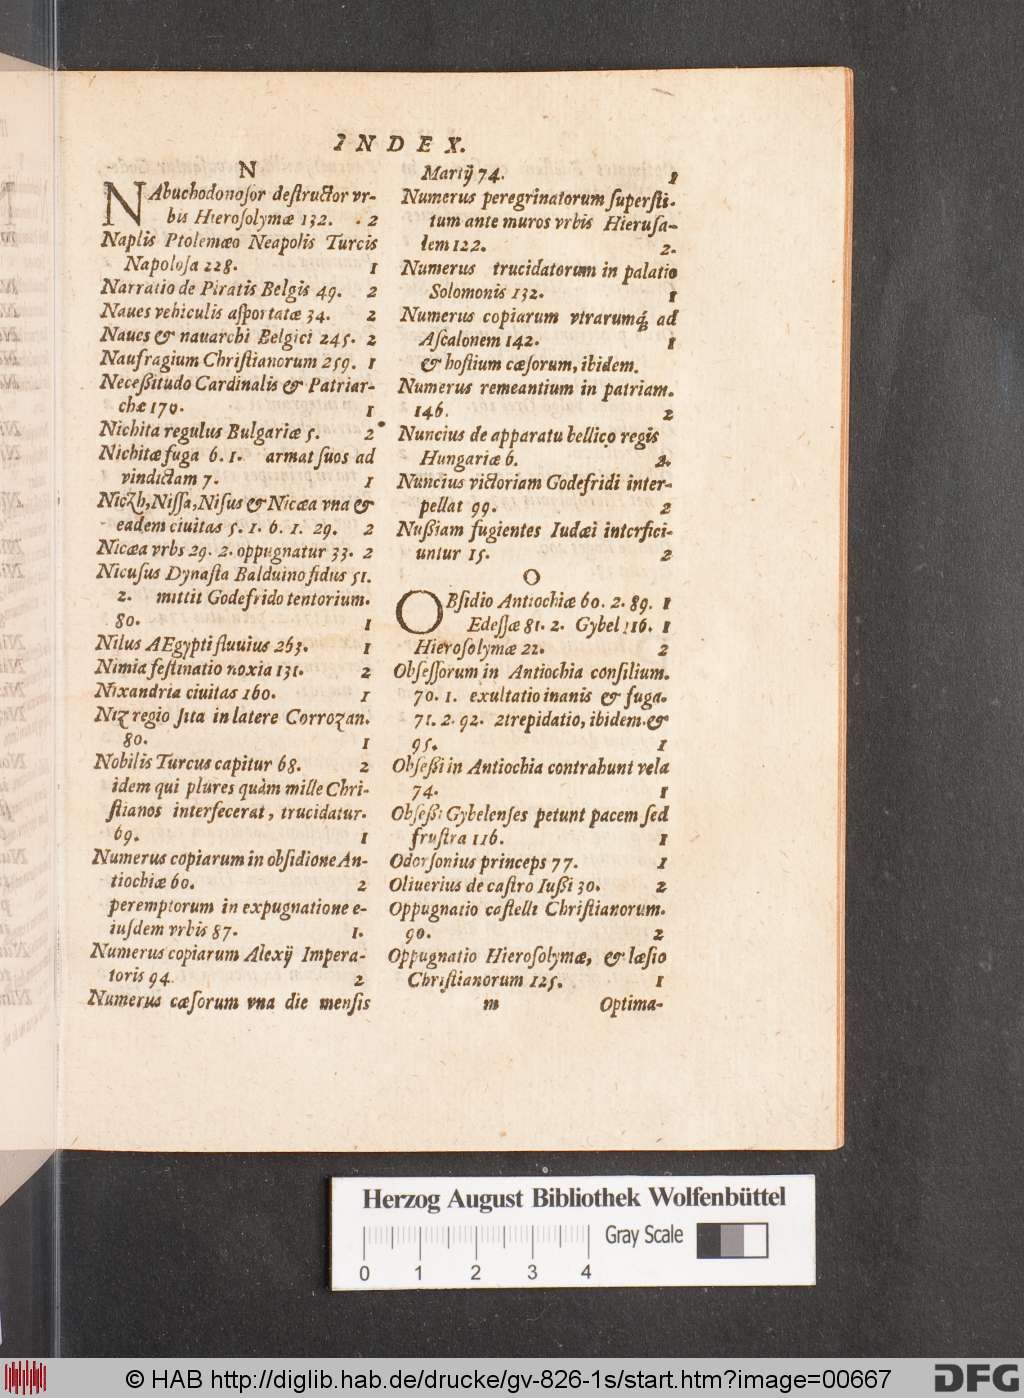 INDEX.
N
NAbuchodonosor destructor vr-
bis Hierosolymæ 132. 2
Naplis Ptolemæo Neapolis Turcis
Napolosa 228. 1
Narratio de Piratis Belgis 49. 2
Naues vehiculis asportatæ 34. 2
Naues & nauarchi Belgici 245. 2
Naufragium Christianorum 259. 1
Necessitudo Cardinalis & Patriar-
chæ 170. 1
Nichita regulus Bulgariæ 5. 2
Nichitæ fuga 6. 1. armat suos ad
vindictam 7. 1
Niczh, Nissa, Nisus & Nicæa vna &
eadem ciuitas 5. 1. 6. 1. 29. 2
Nicæa vrbs 29. 2. oppugnatur 33. 2
Nicusus Dynasta Balduino fidus 51.
2. mittit Godefrido tentorium.
80. 1
Nilus AEgypti fluuius 263. 1
Nimia festinatio noxia 131. 2
Nixandria ciuitas 160. 1
Niz regio sita in latere Corrozan.
80. 1
Nobilis Turcus capitur 68. 2
idem qui plures quàm mille Chri-
stianos interfecerat, trucidatur.
69. 1
Numerus copiarum in obsidione An-
tiochiæ 60. 2
peremptorum in expugnatione e-
iusdem vrbis 87. 1.
Numerus copiarum Alexij Impera-
toris 94. 2
Numerus cæsorum vna die mensis
Martij 74. 1
Numerus peregrinatorum supersti-
tum ante muros vrbis Hierusa-
lem 122. 2.
Numerus trucidatorum in palatio
Solomonis 132. 1
Numerus copiarum vtrarumq́; ad
Ascalonem 142. 1
& hostium cæsorum, ibidem.
Numerus remeantium in patriam.
146. 2
Nuncius de apparatu bellico regis
Hungariæ 6. 2.
Nuncius victoriam Godefridi inter-
pellat 99. 2
Nussiam fugientes Iudæi interfici-
untur 15. 2
O
OBsidio Antiochiæ 60. 2. 89. 1
Edessæ 81. 2. Gybel 116. 1
Hierosolymæ 22. 2
Obsessorum in Antiochia consilium.
70. 1. exultatio inanis & fuga.
71. 2. 92. 2 trepidatio, ibidem. &
95. 1
Obsessi in Antiochia contrahunt vela
74. 1
Obsessi Gybelenses petunt pacem sed
frustra 116. 1
Odorsonius princeps 77. 1
Oliuerius de castro Iussi 30. 2
Oppugnatio castelli Christianorum.
90. 2
Oppugnatio Hierosolymæ, & læsio
Christianorum 125. 1
m Optima-
Herzog August Bibliothek Wolfenbüttel
Gray Scale
0 1 2 3 4
© HAB http://diglib.hab.de/drucke/gv-826-1s/start.htm?image=00667
DFG